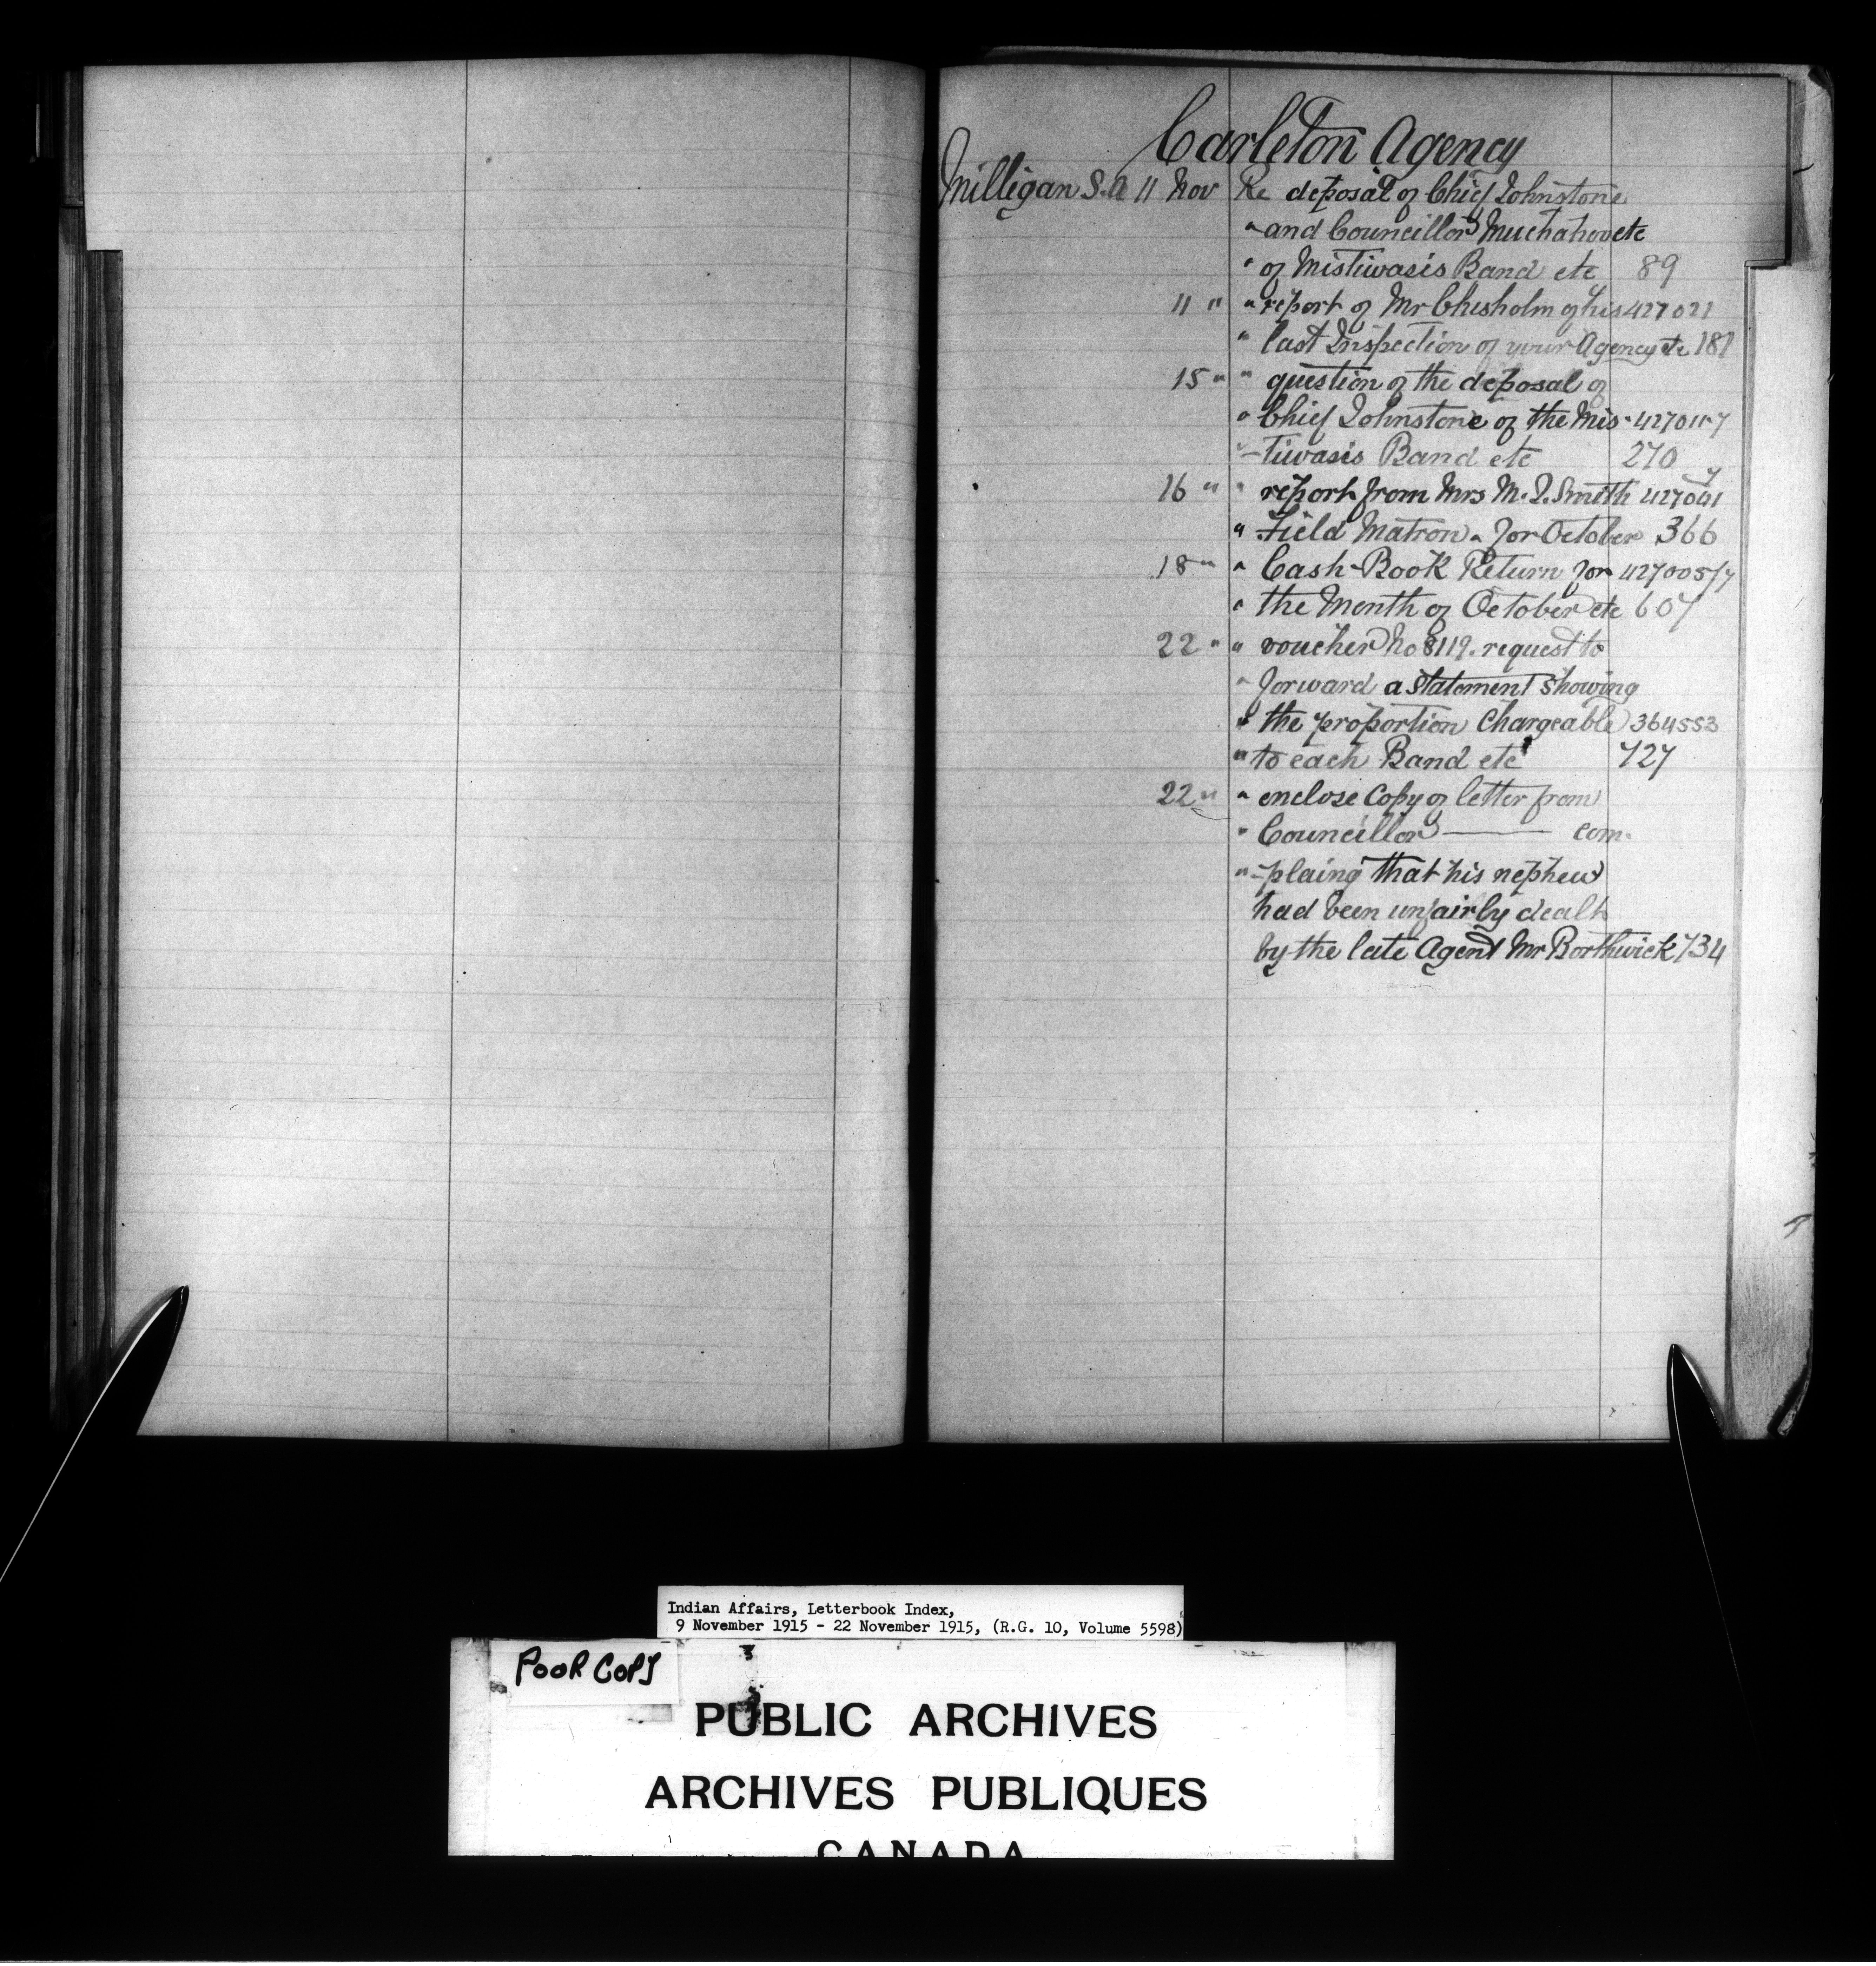 Carleton Agency
Milligan S.A 11 Nov Re deposal of Chief Johnstone
" and Councillor Muchahovetc
" of Mistiwasis Band etc 89
11 " " report of Mr Chisholm of his 427021
" last Inspection of your Agency etc 181
15 " " question of the deposal of
" Chief Johnstone of the Mis-
" -tiwasis Band etc 270
16 " " report from Mrs M. J. Smith
" Field Matron. for October 366
18 " " Cash-Book Return for 427005/7
" the Month of October etc 607
22 " " voucher No 8119. request to
" forward a statement showing
" the proportion chargeable 364553
" to each Band etc 727
22 " " enclose Copy of letter from
" Councillor —— com-
" -plaing that his nephew
had been unfairly dealt
by the late Agent Mr Borthwick 734
Indian Affairs, Letterbook Index,
9 November 1915 - 22 November 1915, (R.G. 10, Volume 5598)
POOR COPY
PUBLIC ARCHIVES
ARCHIVES PUBLIQUES
CANADA